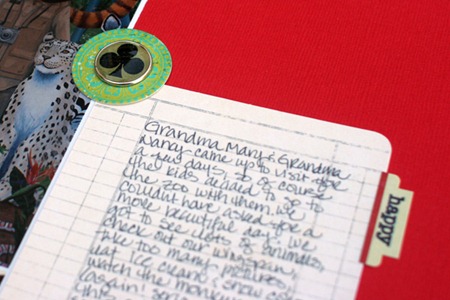 Grandma Mary & Grandma
Nancy came up to visit for
a few days, so of course
the kids decided to go to
the zoo with them. We
couldn't have asked for a
more beautiful day. We
got to see lots of animals,
check out our wingspan,
take too many pictures,
eat ice cream & snow cones
watch the monkeys
(again!
this
happy